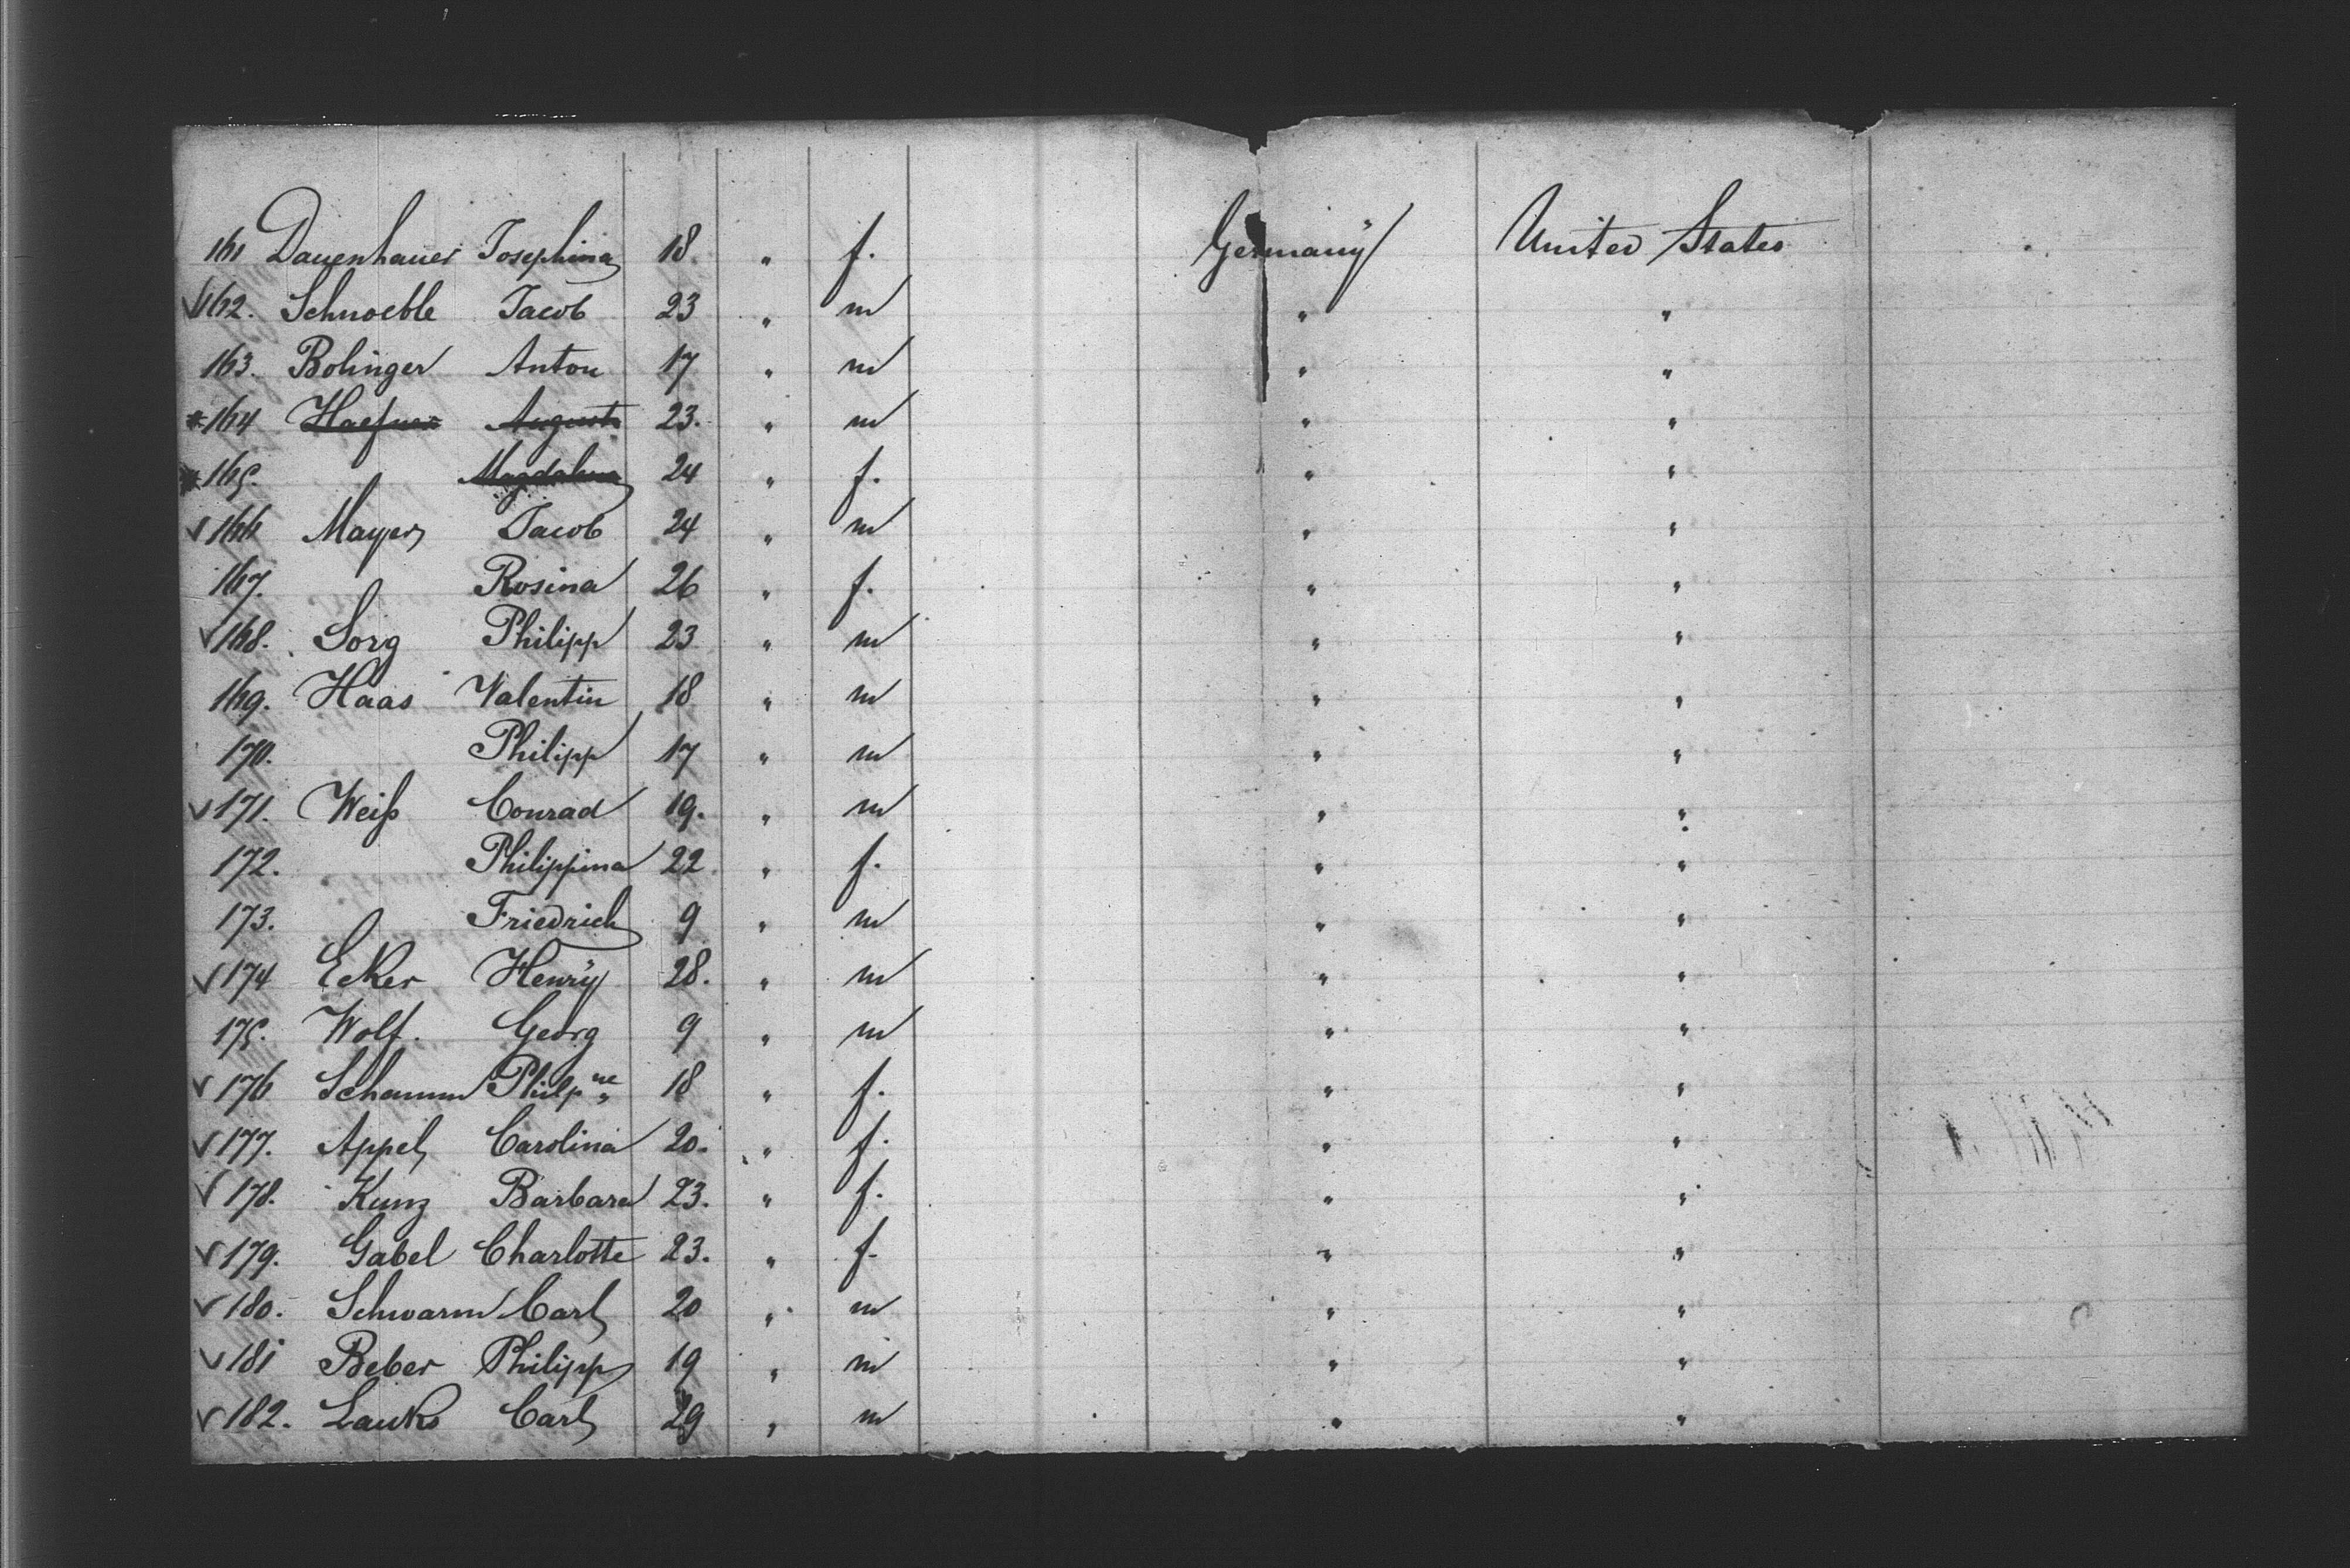 161 Dauenhauer Josephina 18. " f. Germany United States
✓162. Schnoeble Jacob 23 " m " "
163. Bolinger Anton 17 " m " "
*164 Haefner August 23. " m " "
*165. Magdalena 24 " f. " "
✓166 Mayer Jacob 24 " m " "
167. Rosina 26 " f. " "
✓168. Sorg Philipp 23 " m " "
169. Haas Valentin 18 " m " "
170. Philipp 17 " m " "
✓171. Weiß Conrad 19. " m " "
172. Philippina 22 " f. " "
173. Friedrich 9 " m " "
✓174 Ecker Henry 28. " m " "
175. Wolf. Georg 9 " m " "
✓176 Schamm Philpne 18 " f. " "
✓177. Appel Carolina 20. " f. " "
✓178. Kunz Barbara 23. " f. " "
✓179. Gabel Charlotte 23. " f. " "
✓180. Schwarm Carl 20 " m " "
✓181 Beber Philipp 19 " m " "
✓182. Carl 29 " m " "